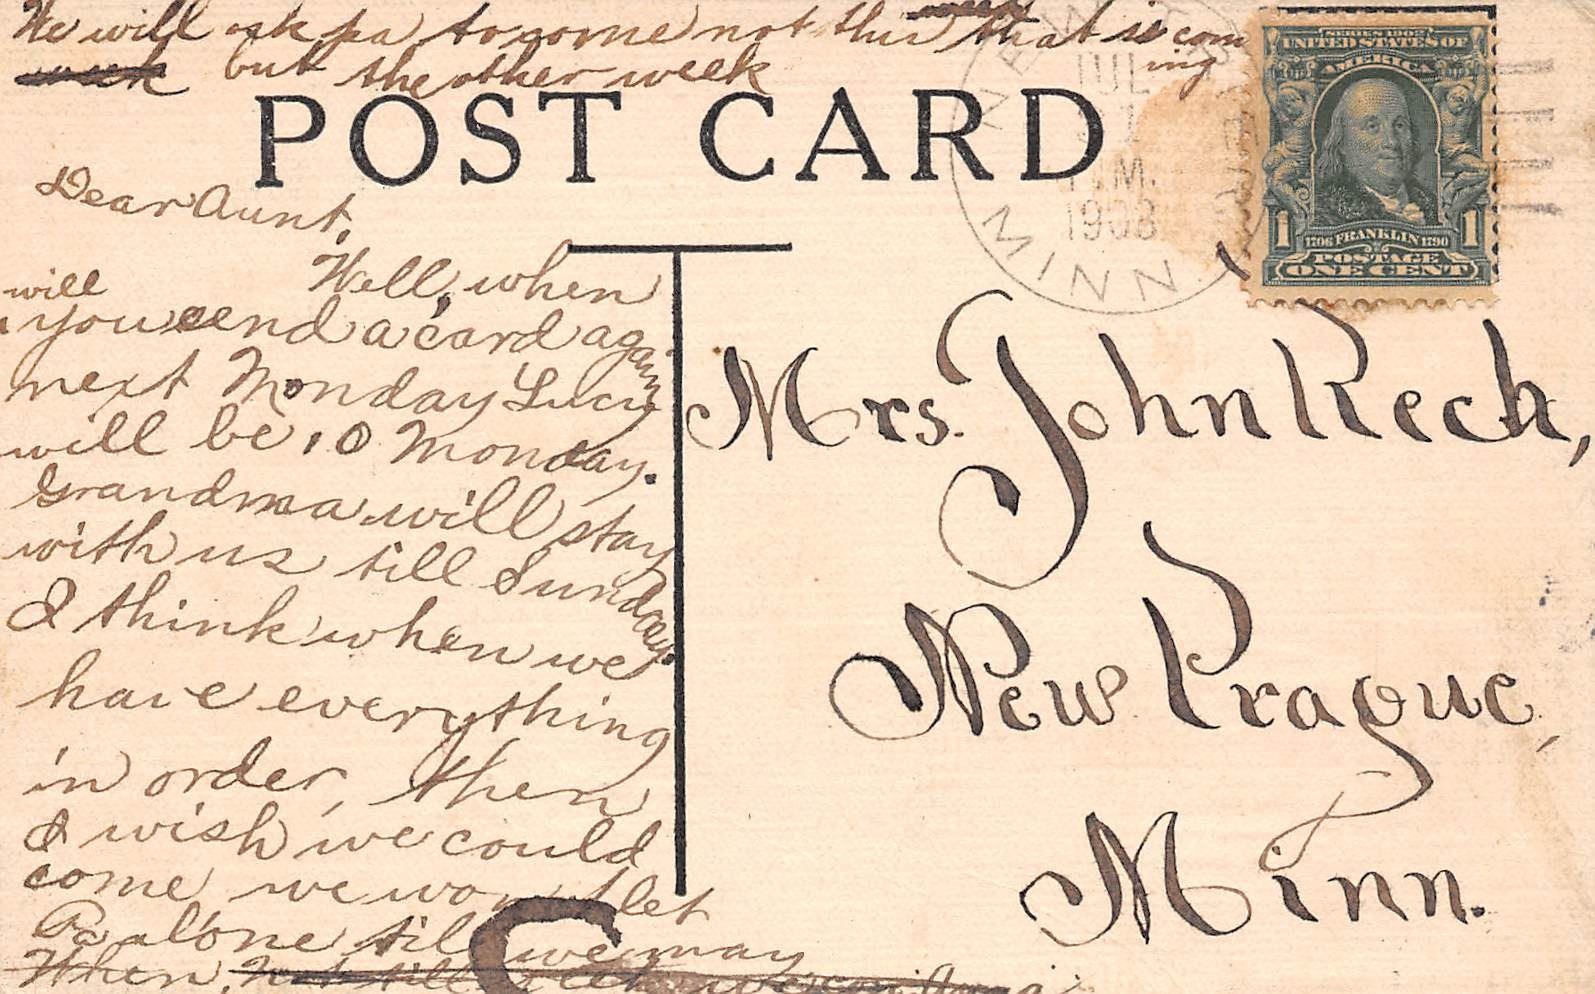 We will ask pa to come not this week that is com
ing
week but the other week
POST CARD
JUL
P.M.
1908
MINN
SERIES 1902
UNITED STATES OF
AMERICA
1 1706 FRANKLIN 1790 1
POSTAGE
ONE CENT
Dear Aunt,
Well, when
will
you send a card again
next Monday Lucy
will be 10 Monday.
Grandma will stay
with us till Sunday.
I think when we
have everything
in order, then
I wish we could
come we wont let
Pa alone till we may
When, not till
Mrs. John Rech,
New Prague,
Minn.